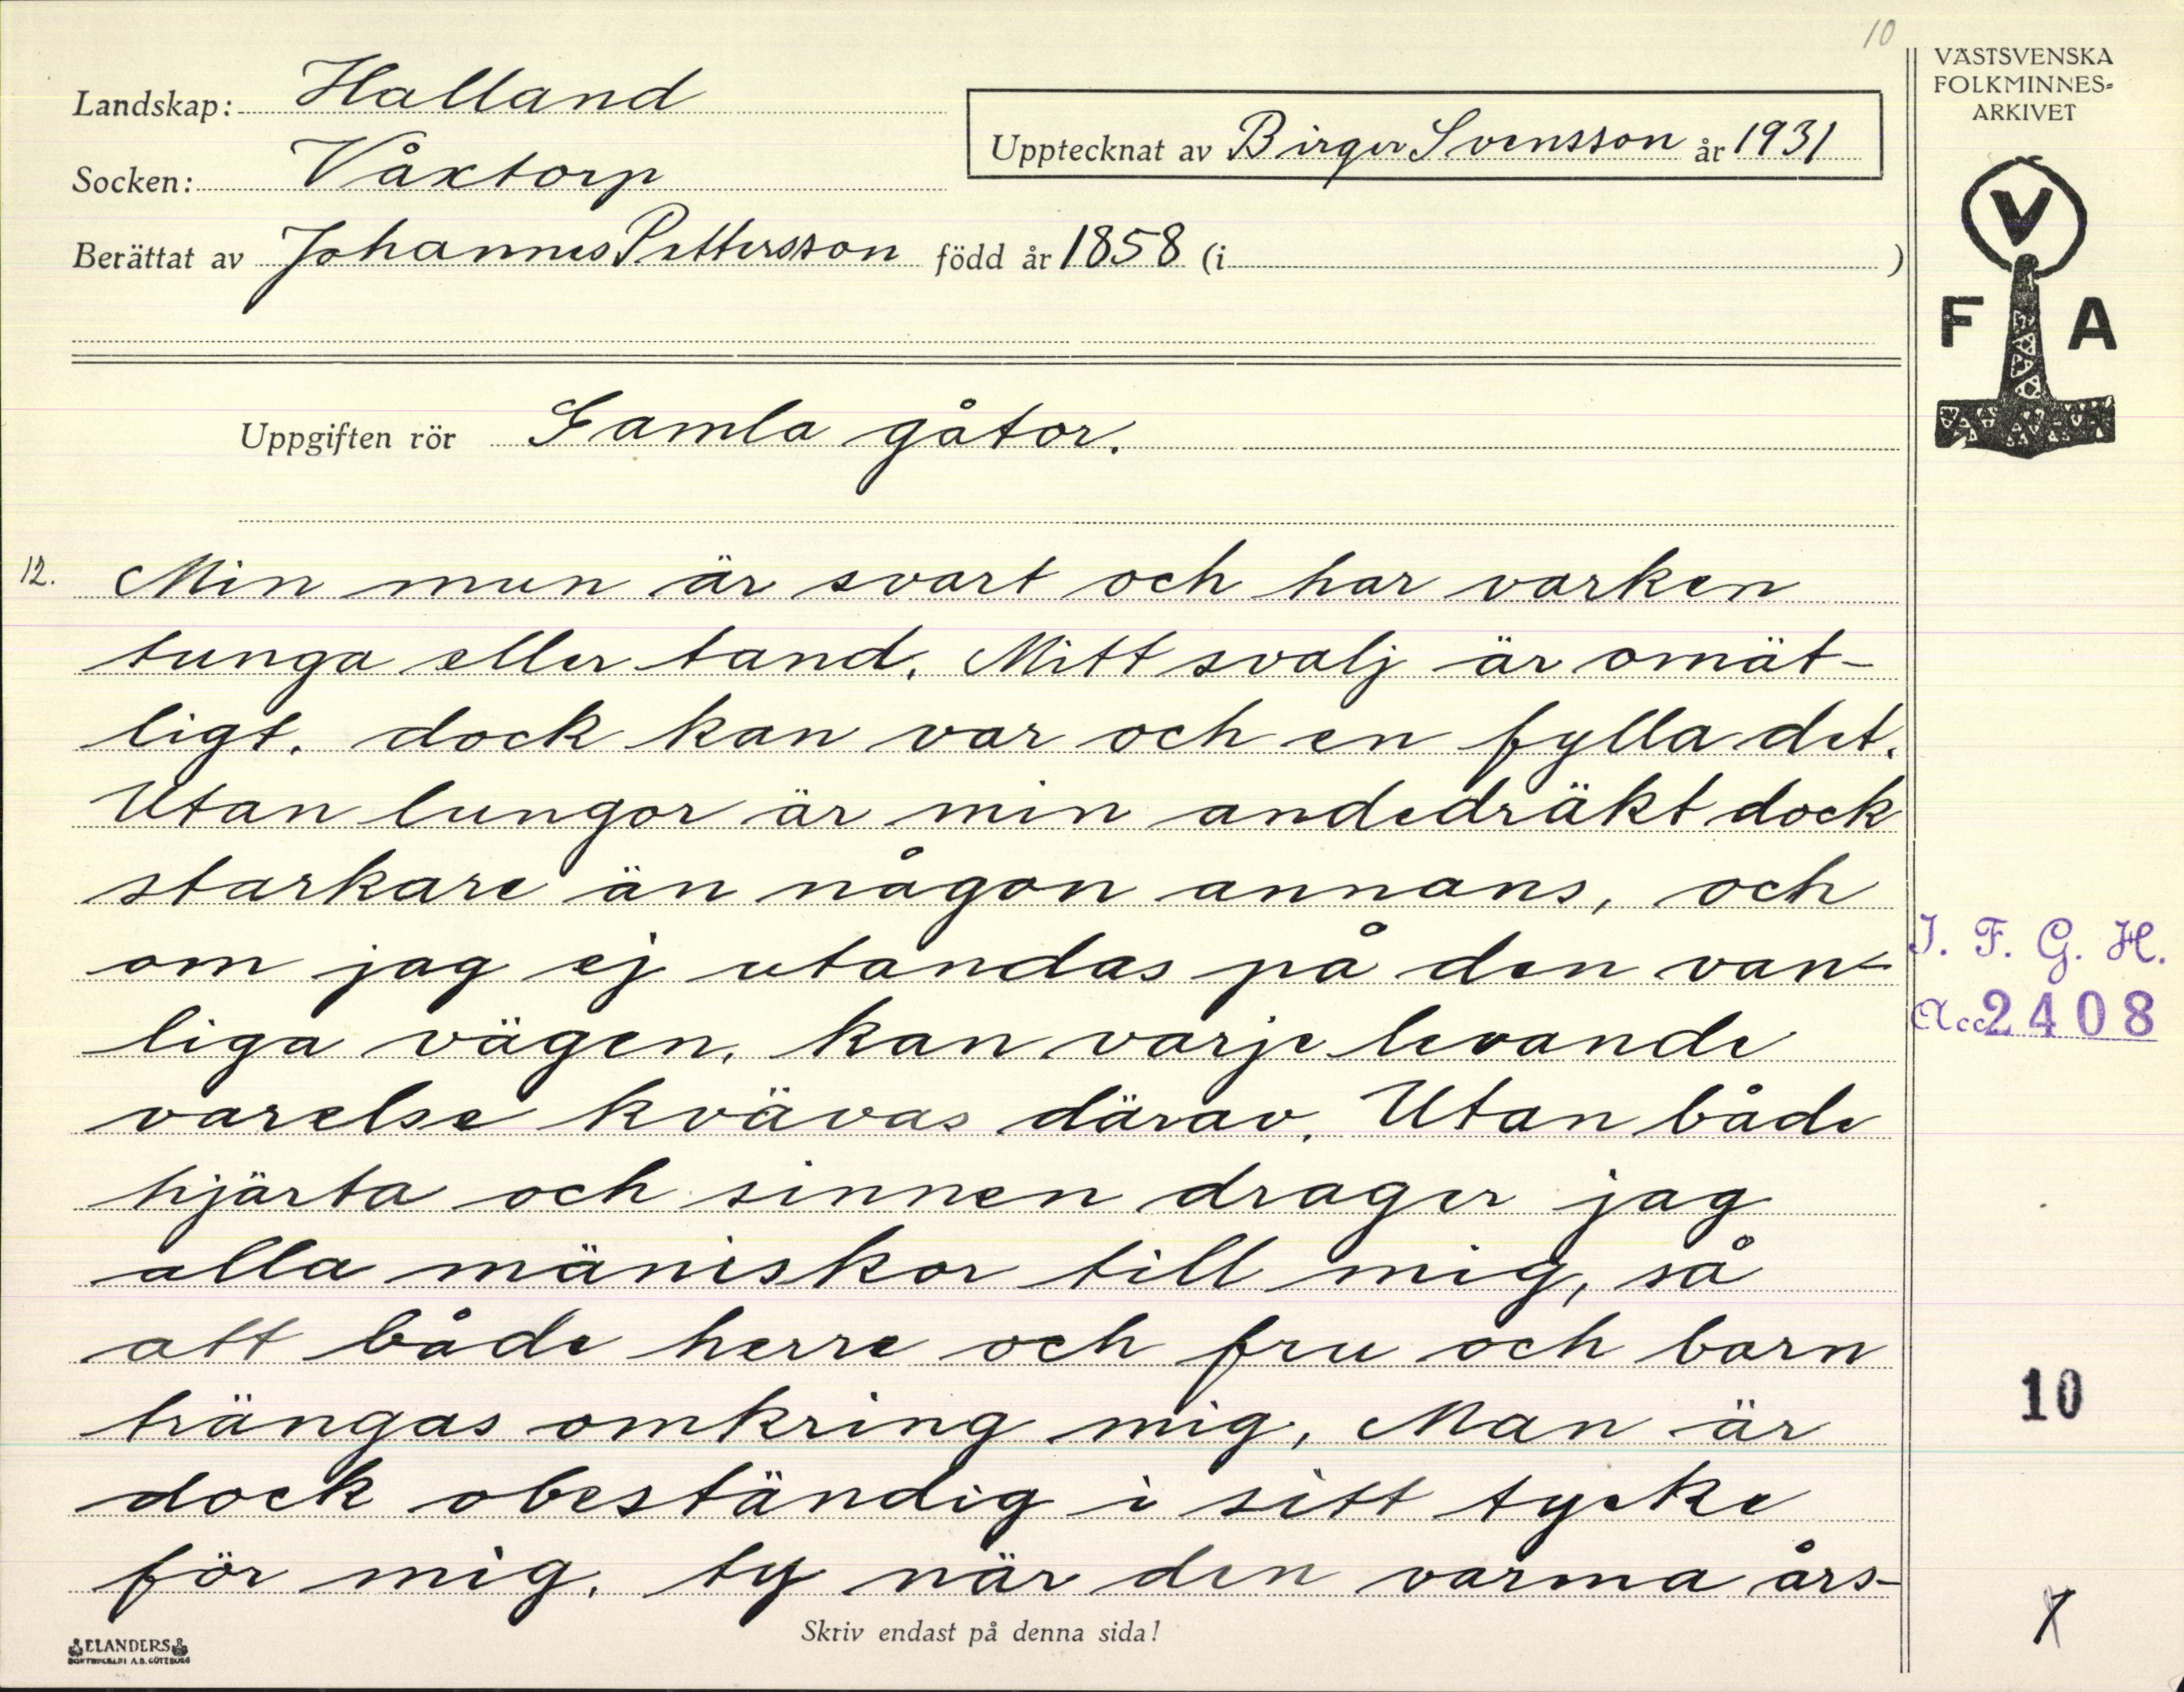 10
VÄSTSVENSKA
FOLKMINNES=
ARKIVET
Landskap: Halland
Upptecknat av Birger Svensson år 1931
Socken: Våxtorp
Berättat av Johannes Pettersson född år 1858 (i )
V
F A
Uppgiften rör Gamla gåtor.
12. Min mun är svart och har varken
tunga eller tand. Mitt svalj är omät-
ligt. dock kan var och en fylla det.
Utan lungor är min andedräkt dock
starkare än någon annans, och
om jag ej utandas på den van-
liga vägen, kan varje levande
varelse kvävas därav. Utan både
hjärta och sinnen drager jag
alla mäniskor till mig, så
att både herre och fru och barn
trängas omkring mig, Man är
dock obeständig i sitt tycke
för mig. ty när den varma års-
I. F. G. H.
Acc 2408
10
Skriv endast på denna sida!
ELANDERS